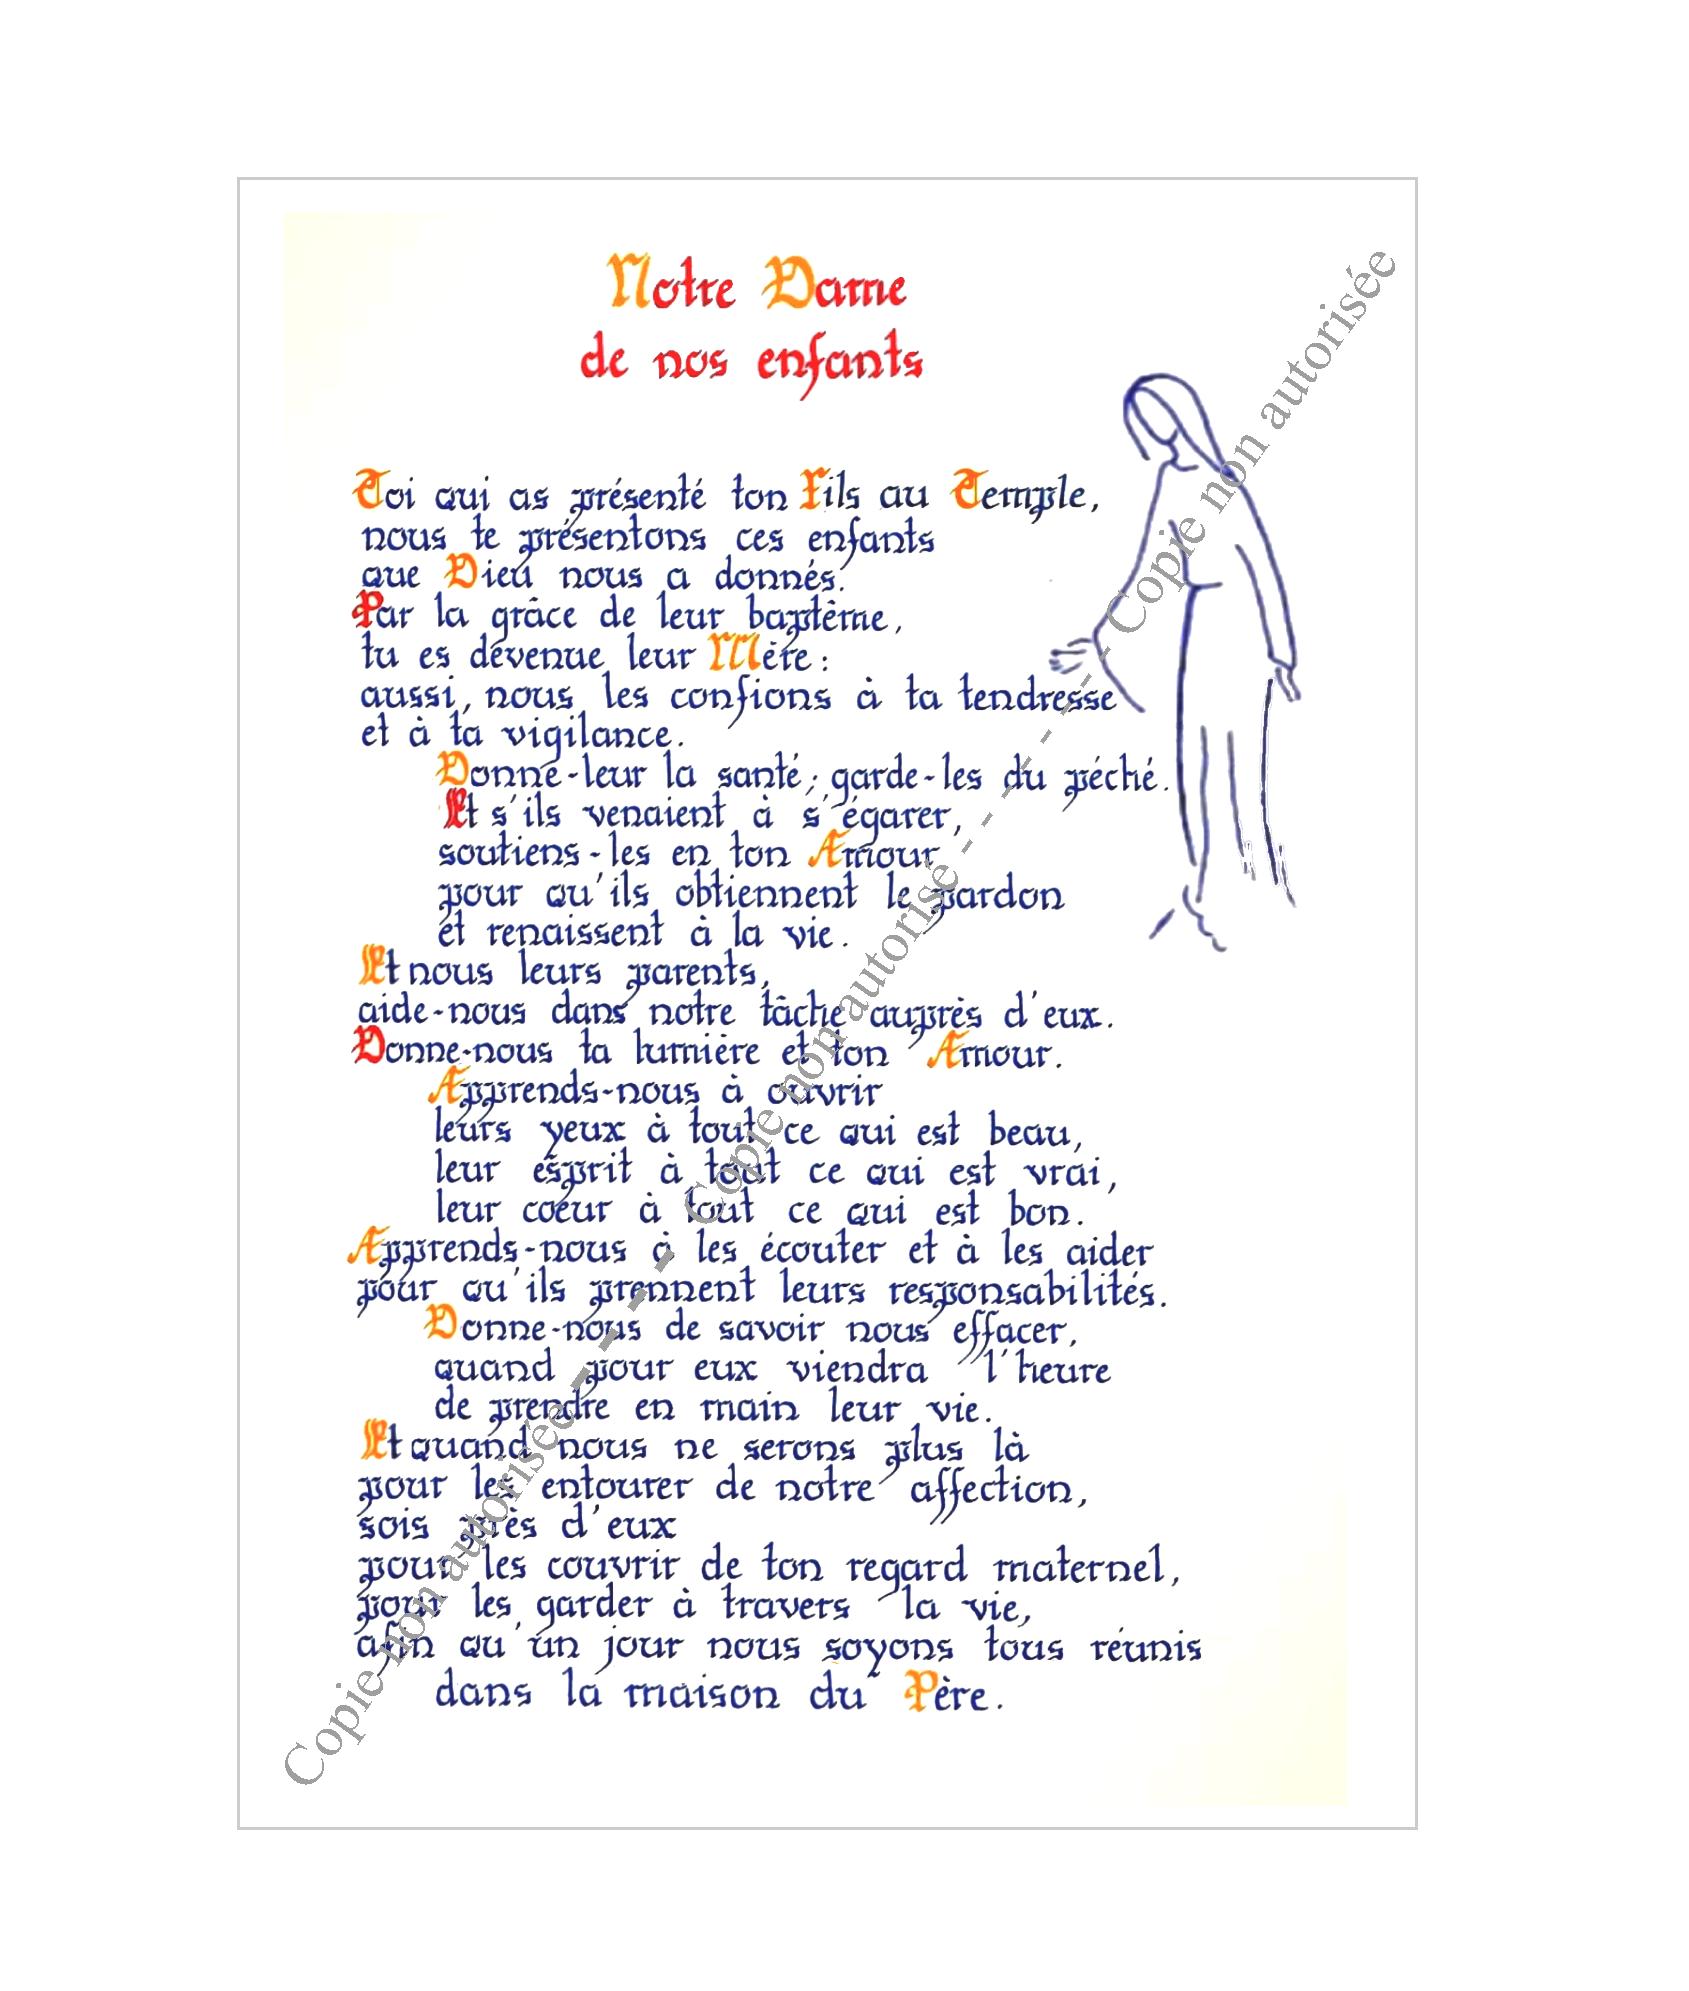 Notre Dame
de nos enfants
Toi qui as présenté ton Fils au Temple,
nous te présentons ces enfants
que Dieu nous a donnés.
Par la grâce de leur baptême,
tu es devenue leur Mère :
aussi, nous les confions à ta tendresse
et à ta vigilance.
Donne-leur la santé ; garde-les du péché.
Et s'ils venaient à s'égarer,
soutiens-les en ton Amour
pour qu'ils obtiennent le pardon
et renaissent à la vie.
Et nous leurs parents,
aide-nous dans notre tâche auprès d'eux.
Donne-nous ta lumière et ton Amour.
Apprends-nous à ouvrir
leurs yeux à tout ce qui est beau,
leur esprit à tout ce qui est vrai,
leur coeur à tout ce qui est bon.
Apprends-nous à les écouter et à les aider
pour qu'ils prennent leurs responsabilités.
Donne-nous de savoir nous effacer,
quand pour eux viendra l'heure
de prendre en main leur vie.
Et quand nous ne serons plus là
pour les entourer de notre affection,
sois près d'eux
pour les couvrir de ton regard maternel,
pour les garder à travers la vie,
afin qu'un jour nous soyons tous réunis
dans la maison du Père.
Copie non autorisée - - - Copie non autorisée - - - Copie non autorisée